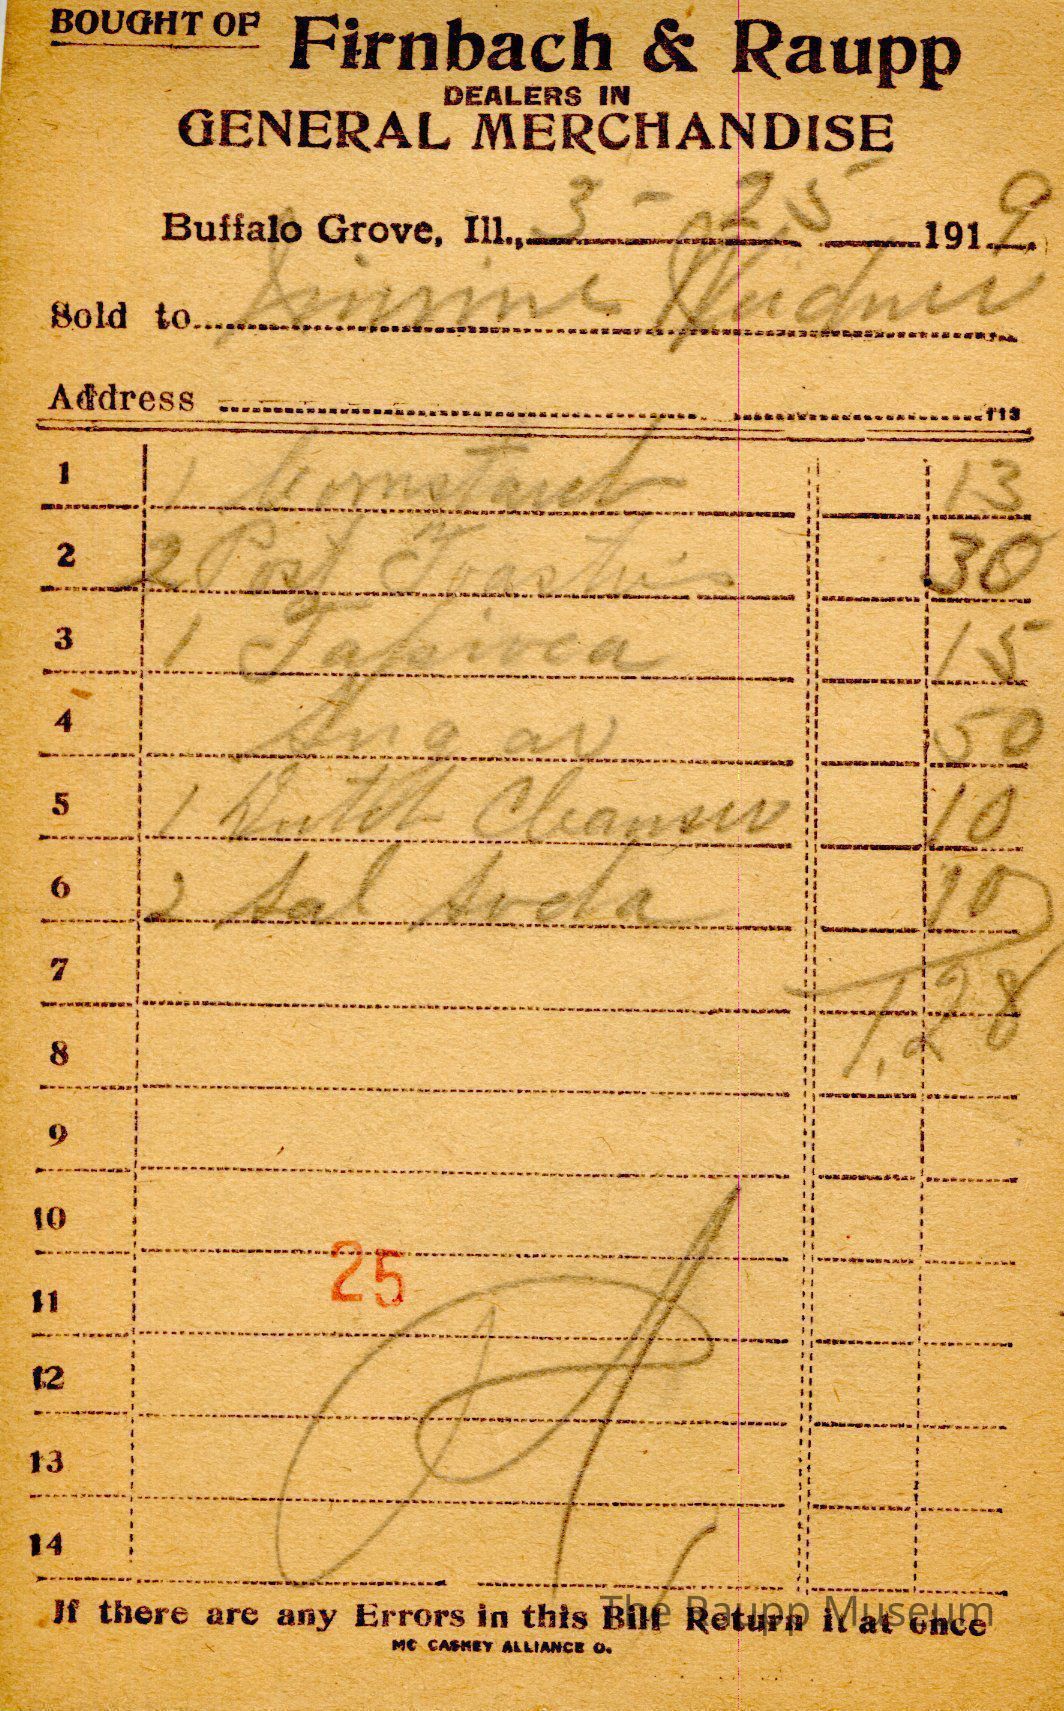 BOUGHT OF Firnbach & Raupp
DEALERS IN
GENERAL MERCHANDISE
Buffalo Grove, Ill., 3 - 25 1919
Sold to
Address
F13
1 1 Cornstarch 13
2 2 Post Toasties 30
3 1 Tapioca 15
4 Sugar 50
5 1 Dutch Cleanser 10
6 2 Sal Soda 10
7 1.28
8
9
10
25
11
12
13
14
If there are any Errors in this Bill Return it at once
The Raupp Museum
MC CASKEY ALLIANCE O.